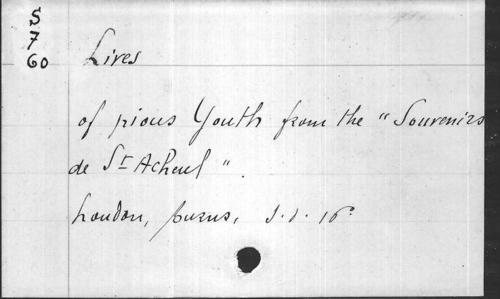 S
7
60
Lives
of pious Youth from the "Souvenirs
de St Acheul".
London, Burns, s.d. 16°